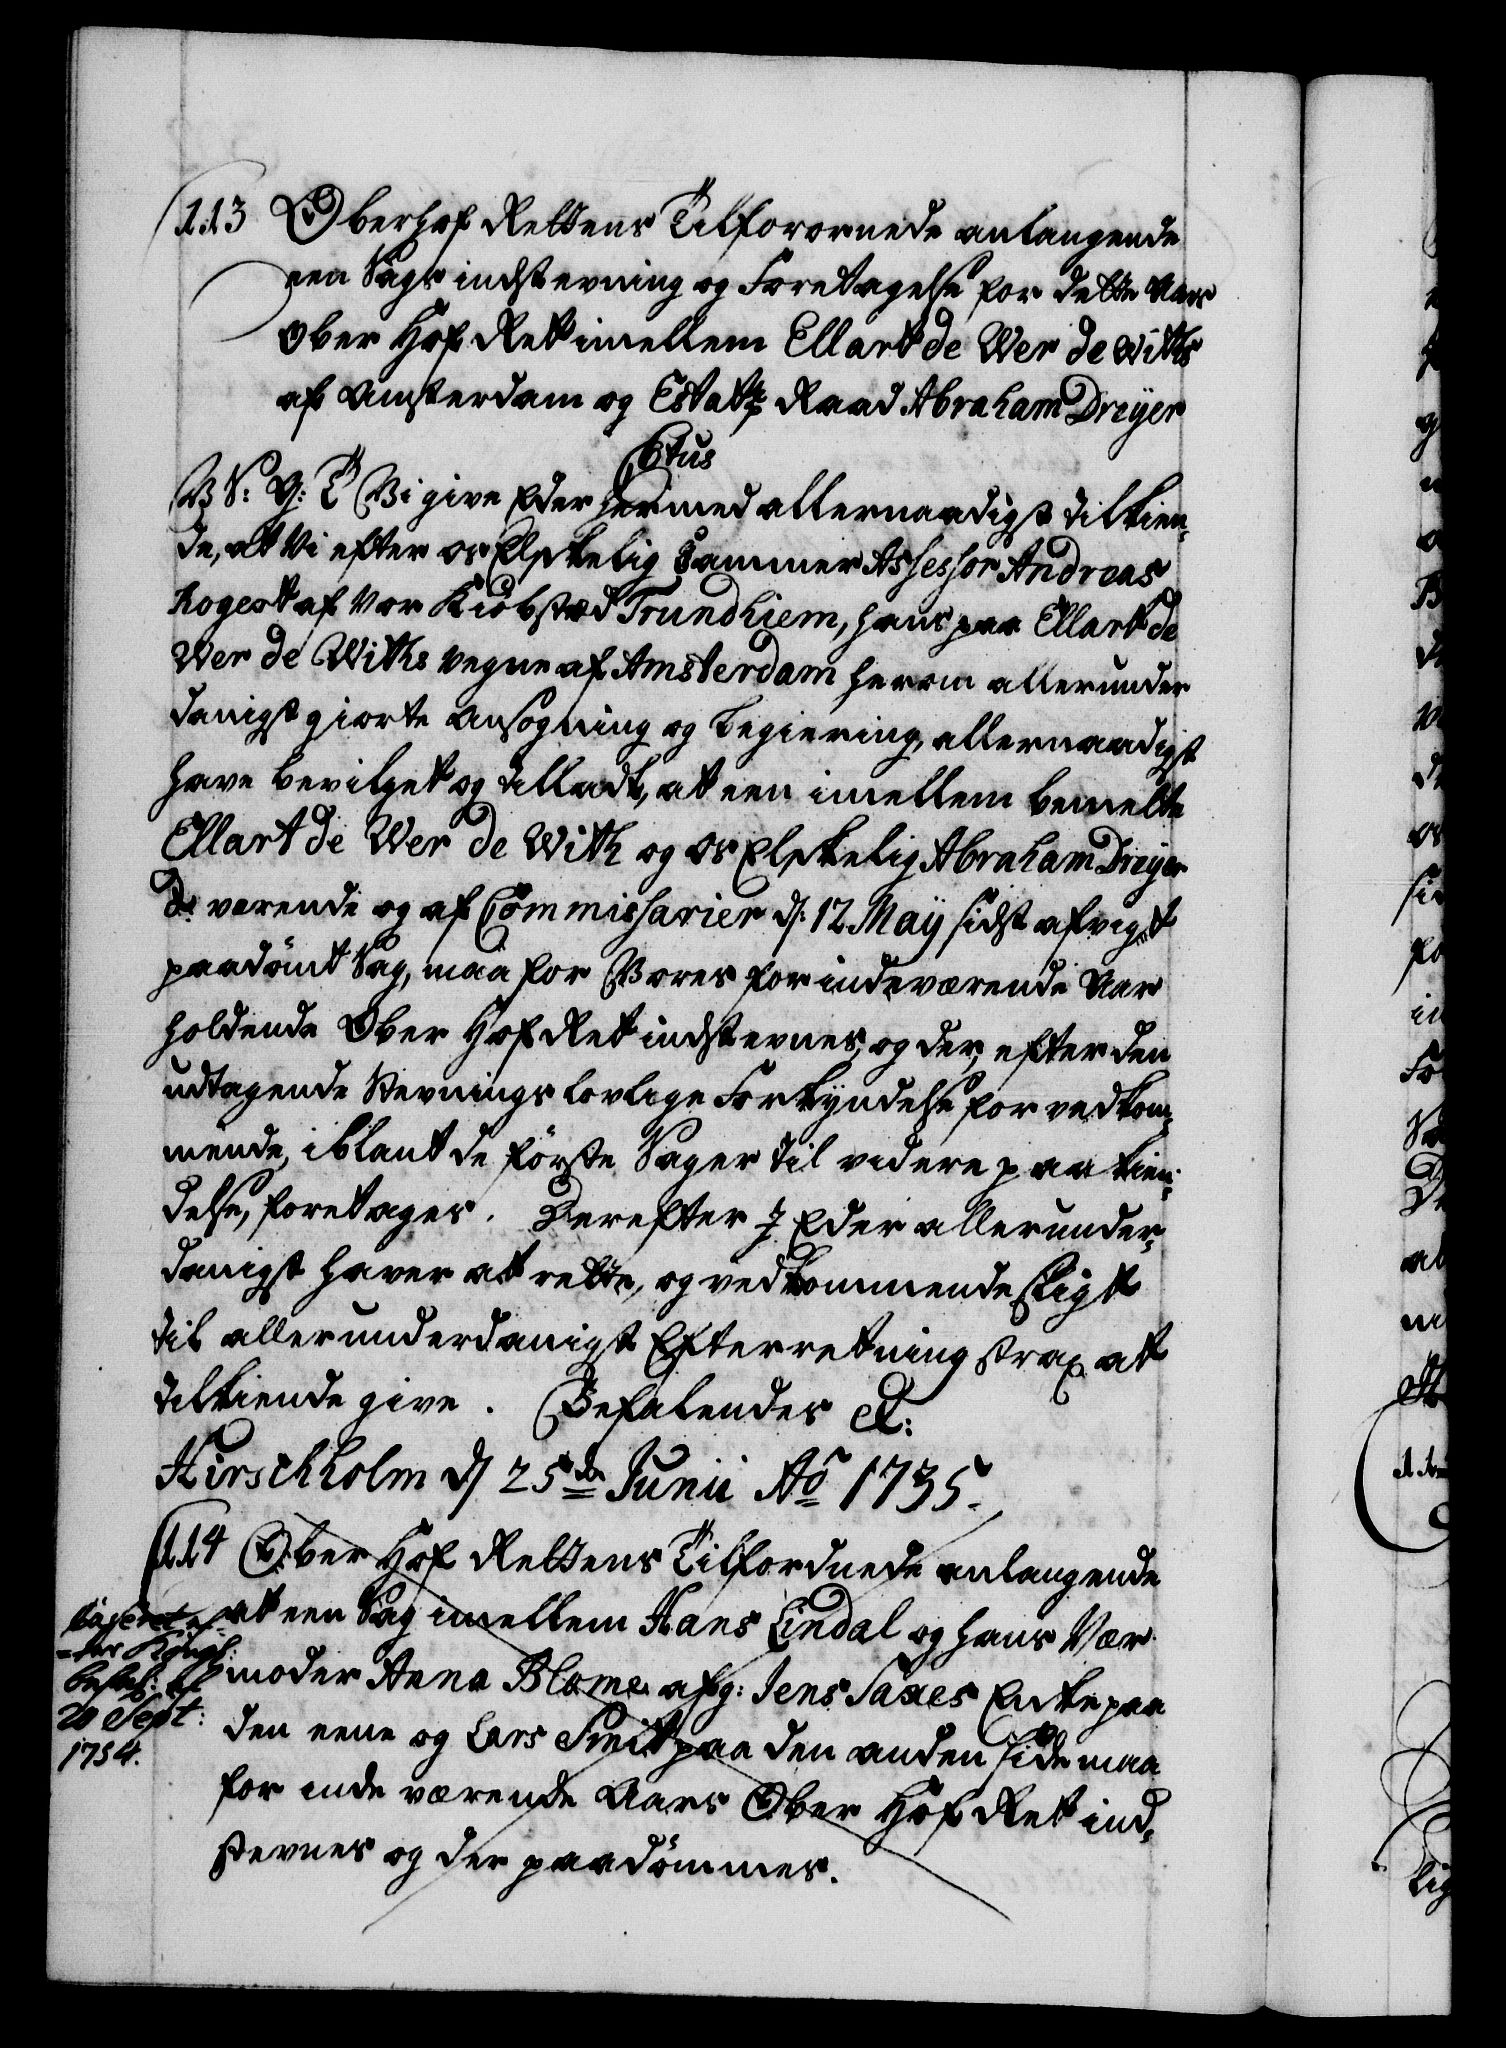 113 Oberhof Rettens Tilforornede anlangende
een Sags indstevning og Foretagelse for dette Aars
Ober Hof Ret imellem Ellart de Wer de Withs
af Amsterdam og Etats Raad Abraham Dreyer
Ctus
V S: G: T Vi give Eder hermed allernaadigst tilkien-
de, at Vi efter os Elskelig Cammer Assessor Andreas
Rogert af Vor Kiöbsted Trundhiem, hans paa Ellart de
Wer de Withs vegne af Amsterdam herom allerunder
danigst giorte Ansögning og begiering, allernaadigst
have bevilget og tilladt, at een imellem bemelte
Ellart de Wer de With og os Elskelig Abraham Dreyer
værende og af Commissarier d: 12 Maÿ sidst afvigt
paadömt Sag, maa for Vores for indeværende Aar
holdende Ober Hof Ret indstevnes, og der, efter den
udtagende Stevnings lovlige Forkyndelse for vedkom-
mende, iblant de förste Sager til videre paakien-
delse, foretages. Derefter I Eder allerunder-
danigst haver at rette, og vedkommende sligt
til allerunderdanigst Efterretning strax at
tilkiende give. Befalendes etc:
Hirschholm d 25de Junii Ao 1735.
114 Ober Hof Rettens Tilfordnede anlangende
at een Sag imellem Hans Lindal og hans Vær
moder Anna Blome afg: Jens Saxes Enke paa
den eene og Lars Smit paa den anden side maa
for inde værende Aars Ober Hof Ret ind-
stevnes og der paadömmes.
Casseret ef-
-ter Kongl:
befal: af
20 Sept:
1754.